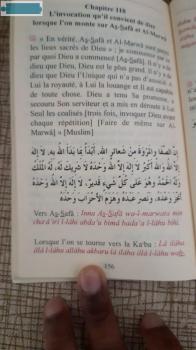 Chapitre 118
L'invocation qu'il convient de dire
lorsque l'on monte sur Aṣ-Ṣafâ et Al-Marwâ
« En vérité, Aṣ-Ṣafâ et Al-Marwâ sont
les lieux sacrés de Dieu » ; je commence
par quoi Dieu a commencé
dieu que Dieu, Dieu est le plus grand. Il n'y a
dieu que Dieu l'Unique qui n'a pas d'associé
Lui la royauté, à Lui la louange et Il est capable
de toute chose. Dieu a tenu Sa promesse, a
secouru Son serviteur et a mis en déroute à Lui
Seul les coalisés (trois fois, invoquer Dieu avant
chaque répétition) [Faire de même sur Al-
Marwâ] » [Muslim]
إنَّ الصَّفَا وَالْمَرْوَةَ مِنْ شَعَائِرِ اللهِ، أَبْدَأُ بِمَا بَدَأَ اللهُ بِهِ، لاَ إِلَهَ
إِلاَّ اللهُ وَاللهُ أَكْبَرُ لاَ إِلَهَ إِلاَّ اللهُ وَحْدَهُ لاَ شَرِيكَ لَهُ، لَهُ الْمُلْكُ
وَلَهُ الْحَمْدُ وَهُوَ عَلَى كُلِّ شَيْءٍ قَدِيرٌ، لاَ إِلَهَ إِلاَّ اللهُ وَحْدَهُ
وَعْدَهُ، وَنَصَرَ عَبْدَهُ وَهَزَمَ الأَحْزَابَ وَحْدَهُ
Vers Aṣ-Ṣafâ : Inna Aṣ-Ṣafâ wa-l-marwata min
cha'â'iri l-lâhi abda'u bimâ bada'a l-lâhu bihi.
Lorsque l'on se tourne vers la Ka'ba : Lâ ilâha
illâ l-lâhu allâhu akbaru lâ ilâha illâ l-lâhu
156